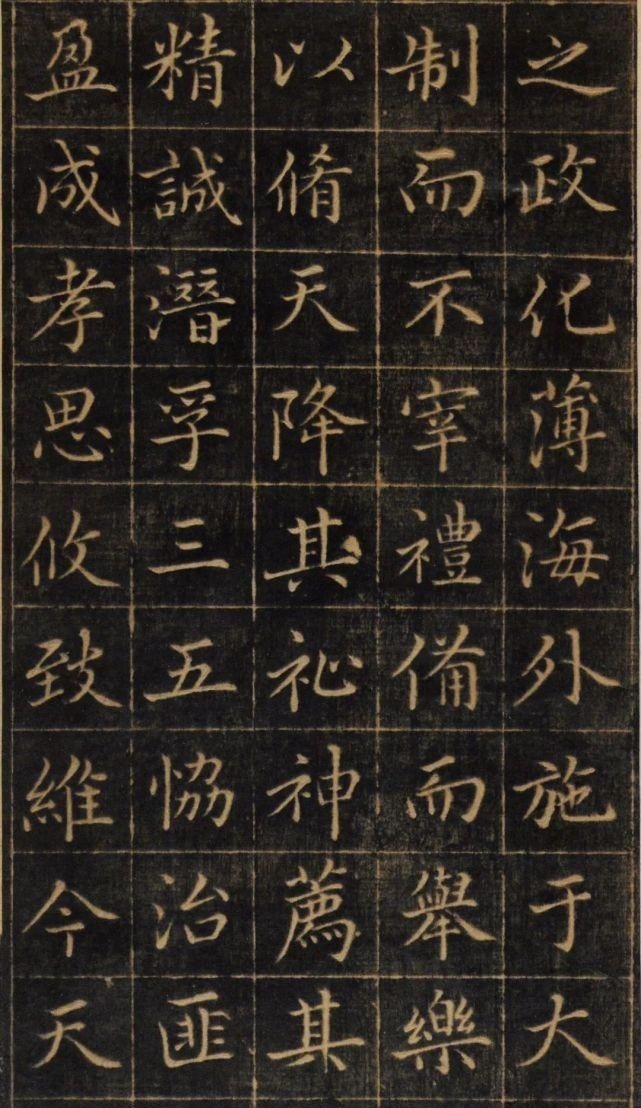 之政化薄海外施于大
制而不宰禮備而舉樂
以脩天降其祉神薦其
精誠潛孚三五恊治匪
盈成孝思攸致維今天